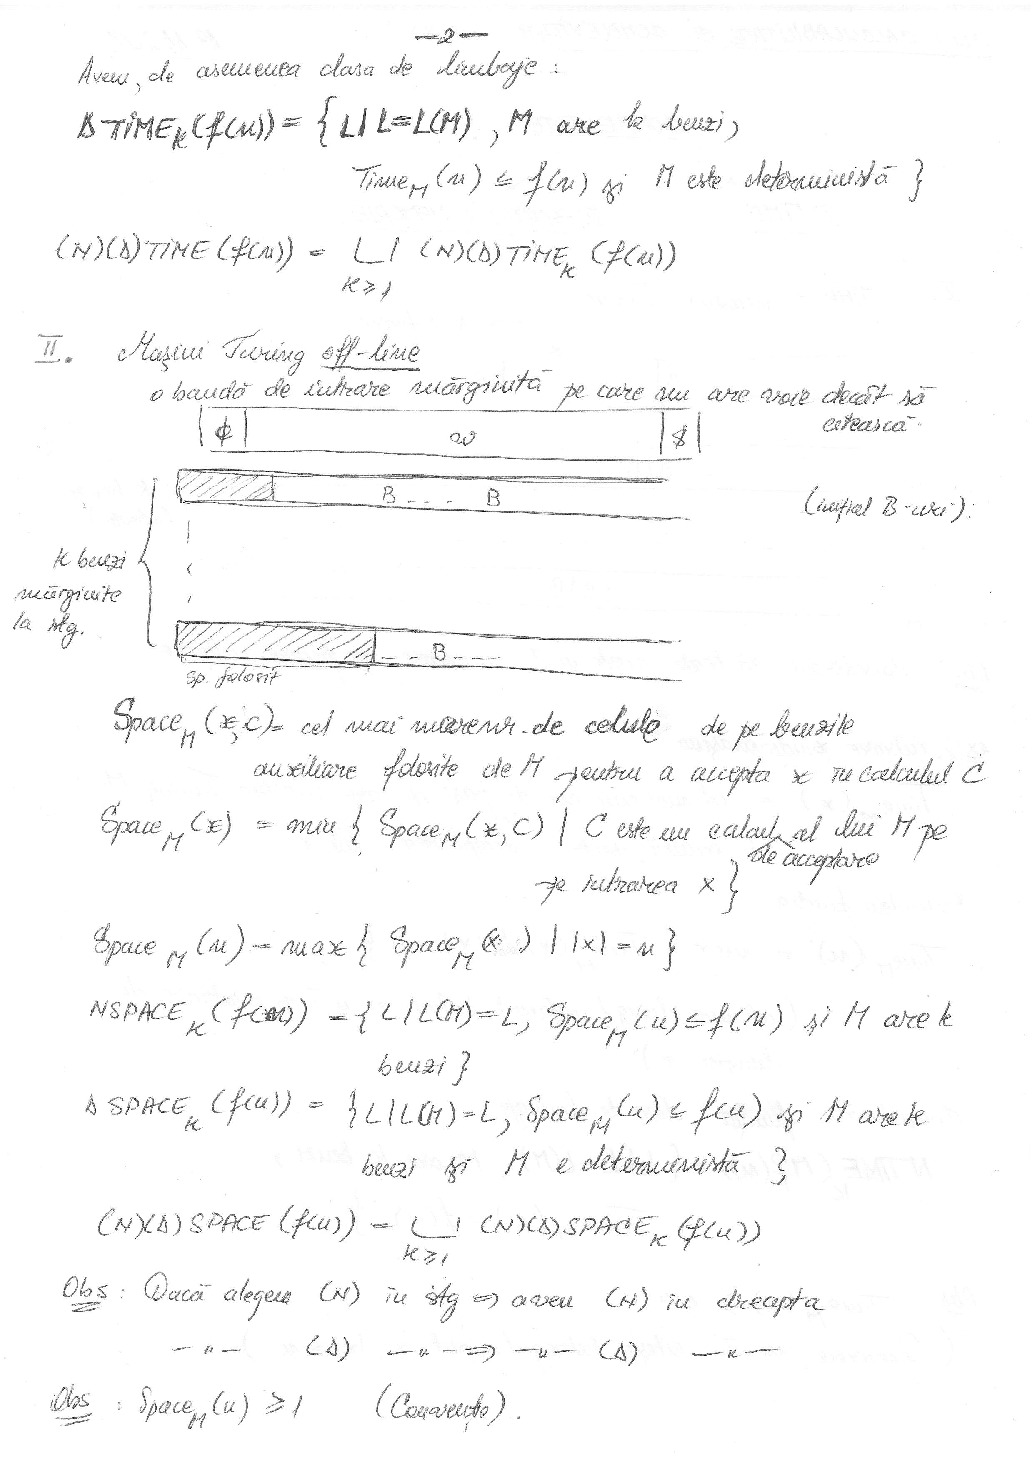 —2—
Avem, de asemenea clasa de limbaje :
DTIME_K(f(n)) = { L | L=L(M) , M are k benzi,
Time_M(n) ≤ f(n) și M este deterministă }
(N)(D)TIME(f(n)) = ⋃ (N)(D)TIME_K (f(n))
K≥1
II. Mașini Turing off-line
o bandă de intrare mărginită pe care nu are voie decât să
citească.
¢ w $
B - - - - B
(inițial B-uri).
K benzi
mărginite
la stg.
- - - B - - -
sp. folosit
Space_M(x,C)= cel mai mare nr. de celule de pe benzile
auxiliare folosite de M pentru a accepta x în calculul C
Space_M(x) = min { Space_M(x,C) | C este un calcul al lui M pe
de acceptare
pe intrarea x }
Space_M(n) = max { Space_M(x) | |x| = n }
NSPACE_K (f(n)) = { L | L(M)=L, Space_M(n) ≤ f(n) și M are k
benzi }
DSPACE_K (f(n)) = { L | L(M)=L, Space_M(n) ≤ f(n) și M are k
benzi și M e deterministă }
(N)(D)SPACE(f(n)) = ⋃ (N)(D)SPACE_K (f(n))
K≥1
Obs : Dacă alegem (N) în stg ⇒ avem (N) în dreapta
—"— (D) —"— ⇒ —"— (D) —"—
Obs : Space_M(n) ≥ 1 (Convenție).